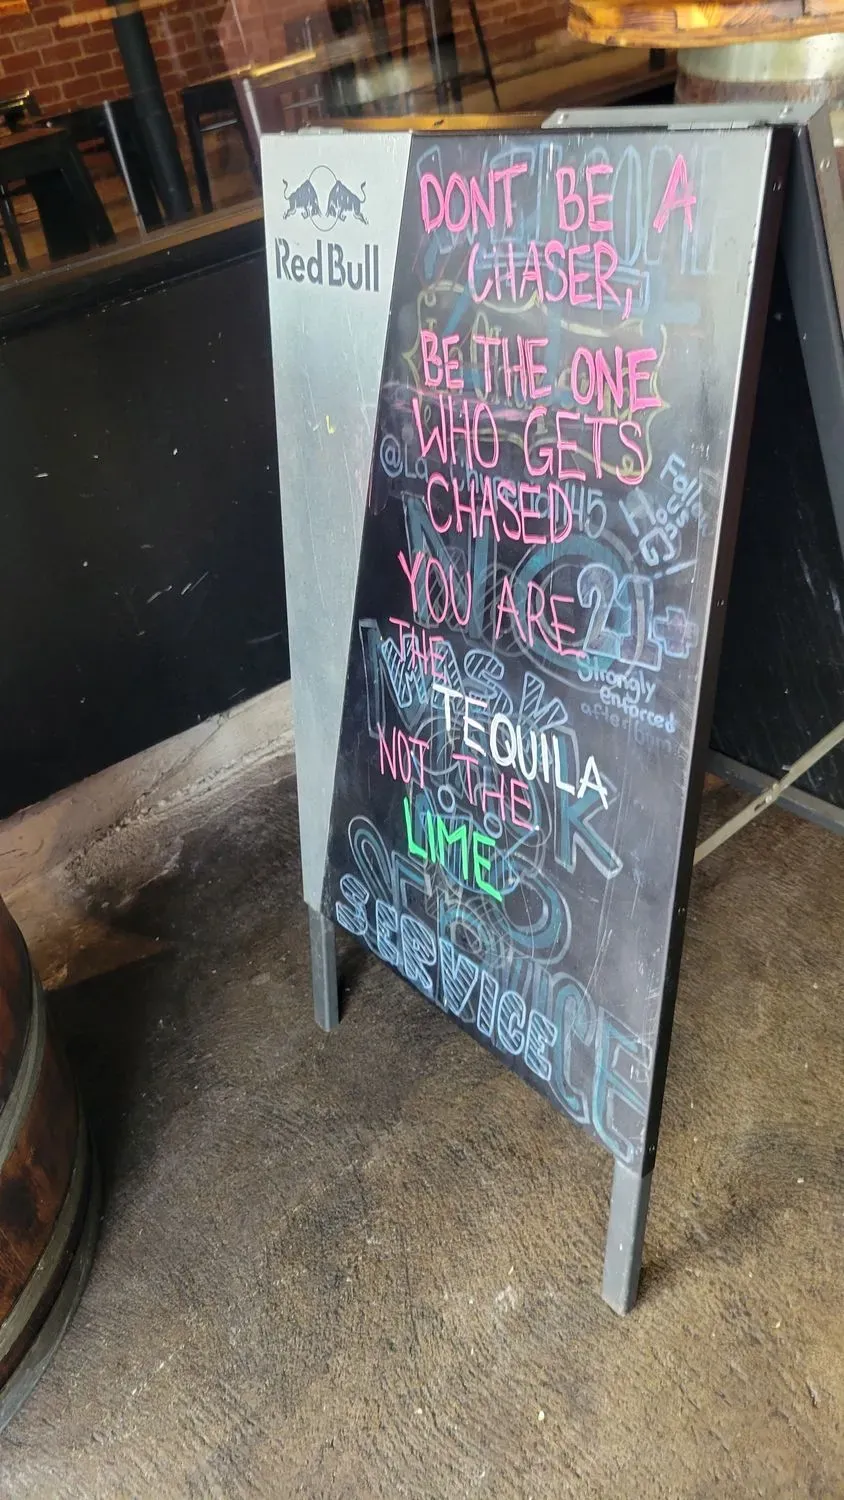 Red Bull
WELCOME
DONT BE A
CHASER,
BE THE ONE
WHO GETS
CHASED
YOU ARE
THE
TEQUILA
NOT THE
LIME
Follow
House
21+
Strongly
enforced
after
NO
MASK
NO
SERVICE